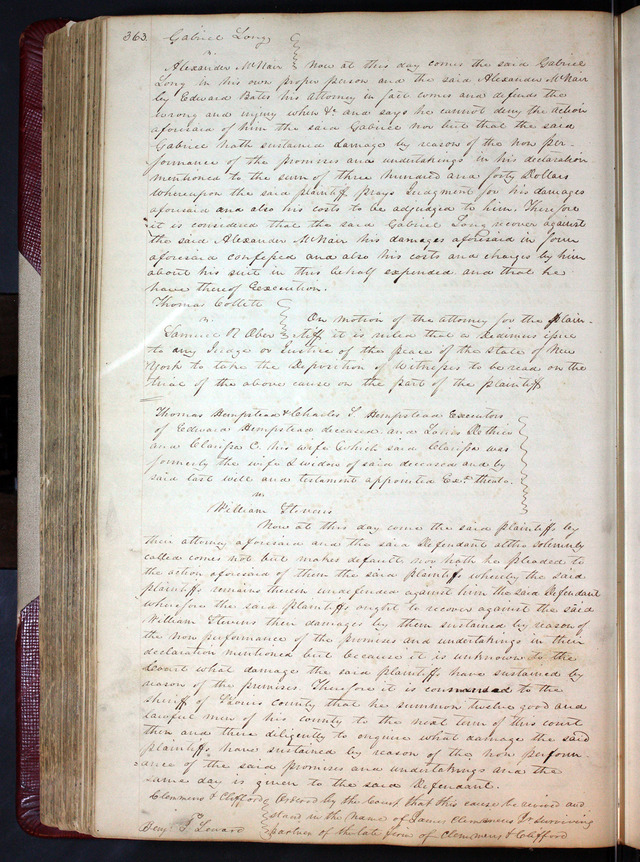 363. Gabriel Long
v.
Alexander McNair } Now at this day comes the said Gabriel
Long in his own proper person and the said Alexander McNair
by Edward Bates his attorney in fact comes and defends the
wrong and injury when &c and says he cannot deny the action
aforesaid of him the said Gabriel nor but that the said
Gabriel hath sustained damage by reason of the non per-
formance of the promises and undertakings in his declaration
mentioned to the sum of three hundred and forty Dollars
Whereupon the said plaintiff prays Judgment for his damages
aforesaid and also his costs to be adjudged to him. Therefore
it is considered that the said Gabriel Long recover against
the said Alexander McNair his damages aforesaid in form
aforesaid confessed and also his costs and charges by him
about his suit in this behalf expended and that he
have thereof Execution.
Thomas Collett
v.
Samuel R Ober } On motion of the attorney for the plain-
tiff it is ruled that a Dedimus issue
to any Judge or Justice of the peace of the State of New
York to take the Deposition of Witnesses to be read on the
trial of the above cause on the part of the plaintiff
Thomas Hempstead & Charles S. Hempstead Executors
of Edward Hempstead deceased and Louis
and Clarissa C. his wife which said Clarissa was
formerly the wife & widow of said deceased and by
said last will and testament appointed Exx thereto.
v.
William Stevens
Now at this day come the said plaintiffs by
their attorney aforesaid and the said Defendant altho solemnly
called comes not but makes default, nor hath he pleaded to
the action aforesaid of them the said plaintiffs whereby the said
plaintiffs remains therein undefended against him the said Defendant
wherefore the said plaintiffs ought to recover against the said
William Stevens their damages by them sustained by reason of
the non performance of the promises and undertakings in their
declaration mentioned but because it is unknown to the
Court what damage the said plaintiffs have sustained by
reason of the premises. Therefore it is commanded to the
Sheriff of county that he summon twelve good and
lawful men of his county to the next term of this court
then and there diligently to enquire what damage the said
plaintiffs have sustained by reason of the non perform
ance of the said promises and undertakings and the
same day is given to the said Defendant.
Clemmens & Clifford } Ordered by the Court that this cause be revived and
v. stand in the name of James Clemmens Jr surviving
Benj. Seward partner of the late firm of Clemmens & Clifford